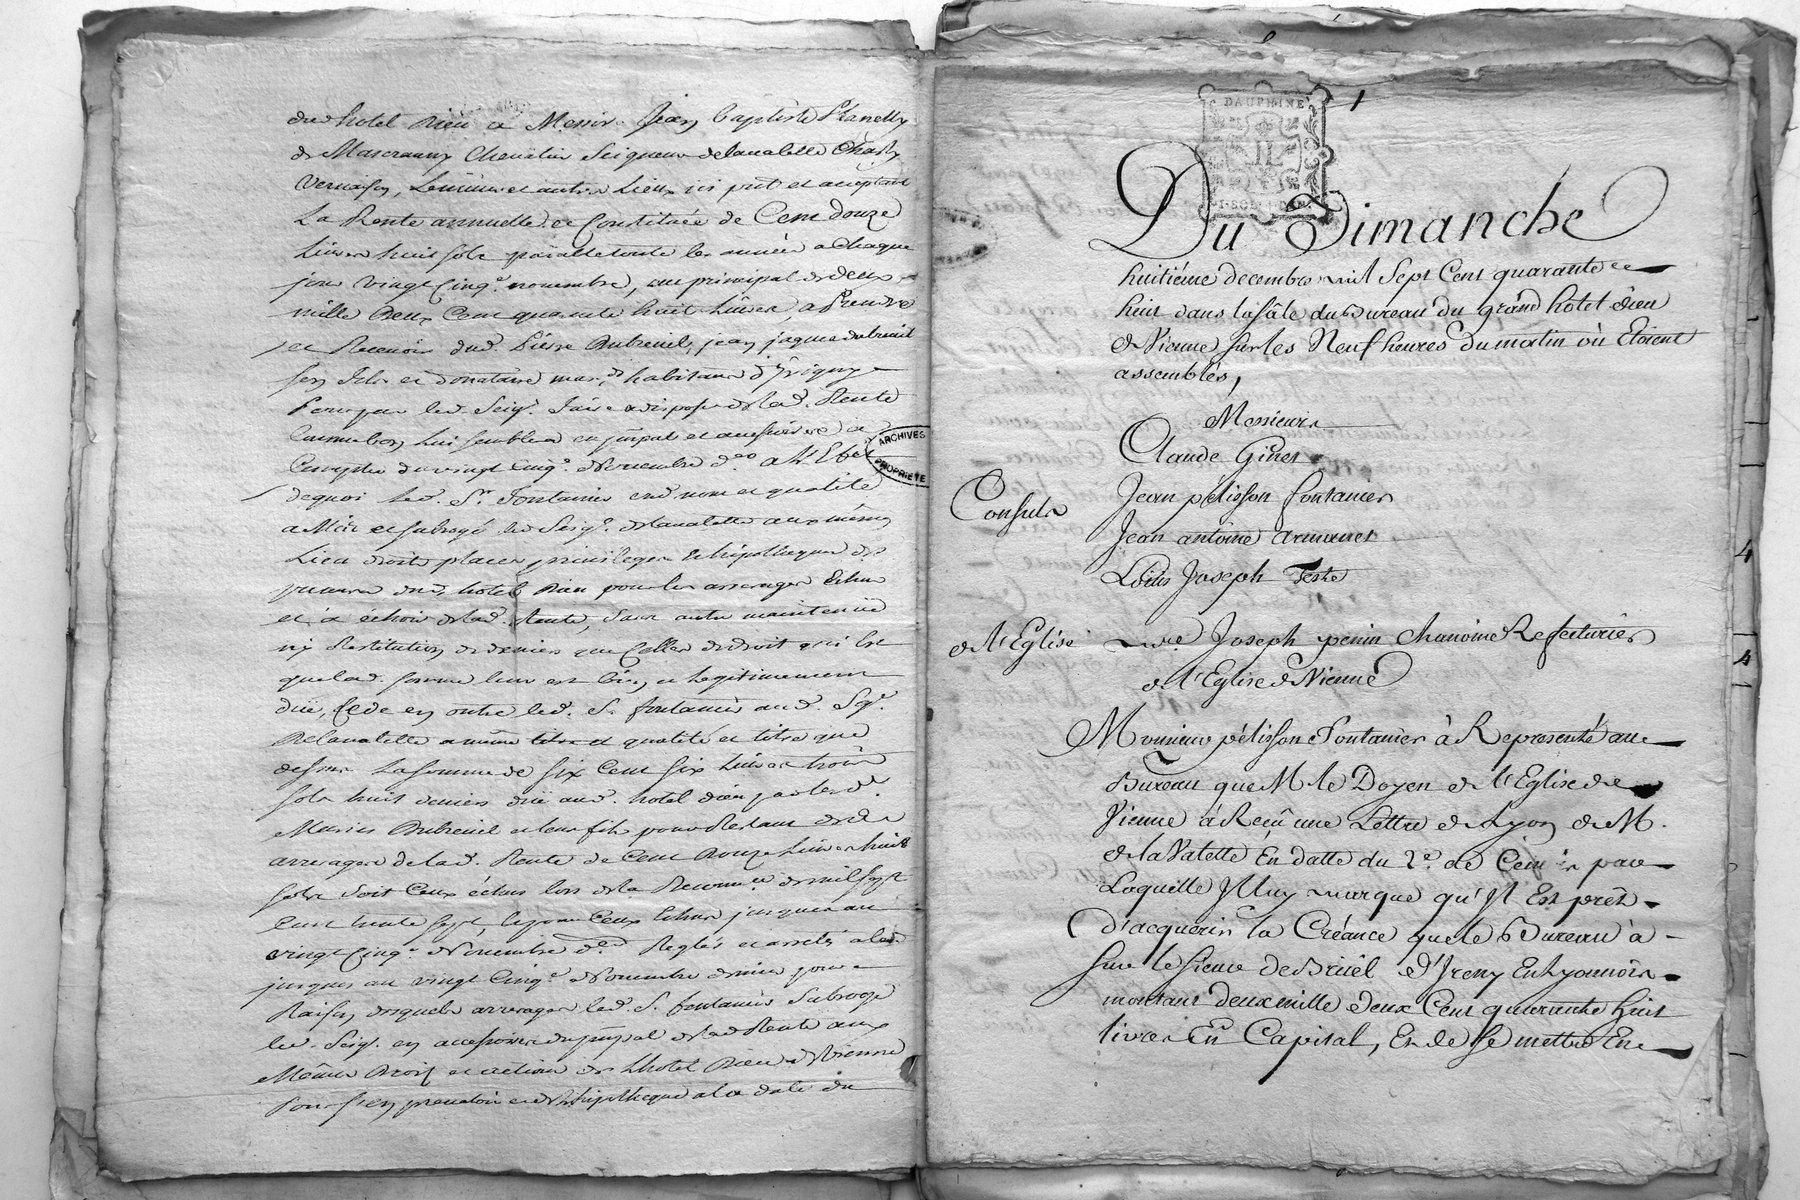 dud hotel Dieu a Messire Jean baptiste Planelly
de Mascranny Chevalier Seigneur delavalette Charly
Vernaison, et autres Lieux icy pnt et acceptant
La Rente annuelle et Constituée de Cent douze
Livres huit sols païable toute les année a chaque
jour vingt Cinq.e novembre, au principal de deux
mille Deux Cent quarante huit Livres, a Prendre
et Recevoir dud. Pierre Dubreuil, jean jaque dubreuil
son fils et donataire mar.ds habitans d'yrigny
Pour par led. Seig.r faire et disposer de lad. Rente
Comme bon lui semblera en pñpal et accessoires a
Compter du vingt Cinq.e Novembre d.er a l'Effet
dequoi led. S.r Fontanier end. nom et qualité
a Mis et subrogé led. Seig.r delavalette aux mêmes
Lieu droits places, privileges et hipotheques
dud. hotel Dieu pour les arrerages Echus
et à échoir de lad. Rente, sans autre maintenüe
ny Restitution de deniers que Celles de droit qui Est
que lad. somme leur est bien et legitimement
düe, Cede en outre led. S. fontanier aud. Sg.r
Delavalette a même titre et qualité et titre que
dessus La somme de six Cent six Livres trois
sols huit deniers düe aud. hotel dieu par lesd.
Mariés Dubreuil et leur fils pour Restant des
arrerages de lad. Rente de Cent Douze Livres huit
sols soit Ceux échus lors de la Reconn.ce de mil sept
Cent trente sept, que Ceux Echus jusques au
vingt Cinq.e Novembre d.er Reglés et arretés
jusques au vingt Cinq.e Novembre dernier pour
Raison desquels arrerages led. S. fontanier Subroge
led. Seig.r en accessoires du pñpal de lad. Rente aux
Mêmes Droits et actions de lhotel Dieu de Vienne
Pour s'en prevaloir et d'hipotheque a la date du
ARCHIVES
PROPRIETE
DAUPHINE
1
Du Dimanche
huitiéme decembre mil Sept Cent quarante
huit dans la sâle du Bureau du grand hotel dieu
de Vienne sur les Neuf heures du matin où Etoient
assemblés,
Messieurs
Claude Ginet
Consuls
Jean pélisson fontanier
Jean antoine armanet
Loüis Joseph Teste
de l'Eglise
m.re Joseph perrin chanoine Refecturier
de l'Eglise de Vienne
Monsieur pélisson Fontanier à Représenté au
Bureau que M le Doyen de l'Eglise de
Vienne à Recû une Lettre de Lyon de M.
de la Valette En datte du 2.e de Ce mois par
Laquelle Il luy marque qu'Il Est prêt
d'acquerir la Créance que le Bureau à
sur le sieur de Bruël d'Ireny En Lyonnois
montant deux mille deux Cent quarante huit
livres En Capital, Et de se mettre En
4
4